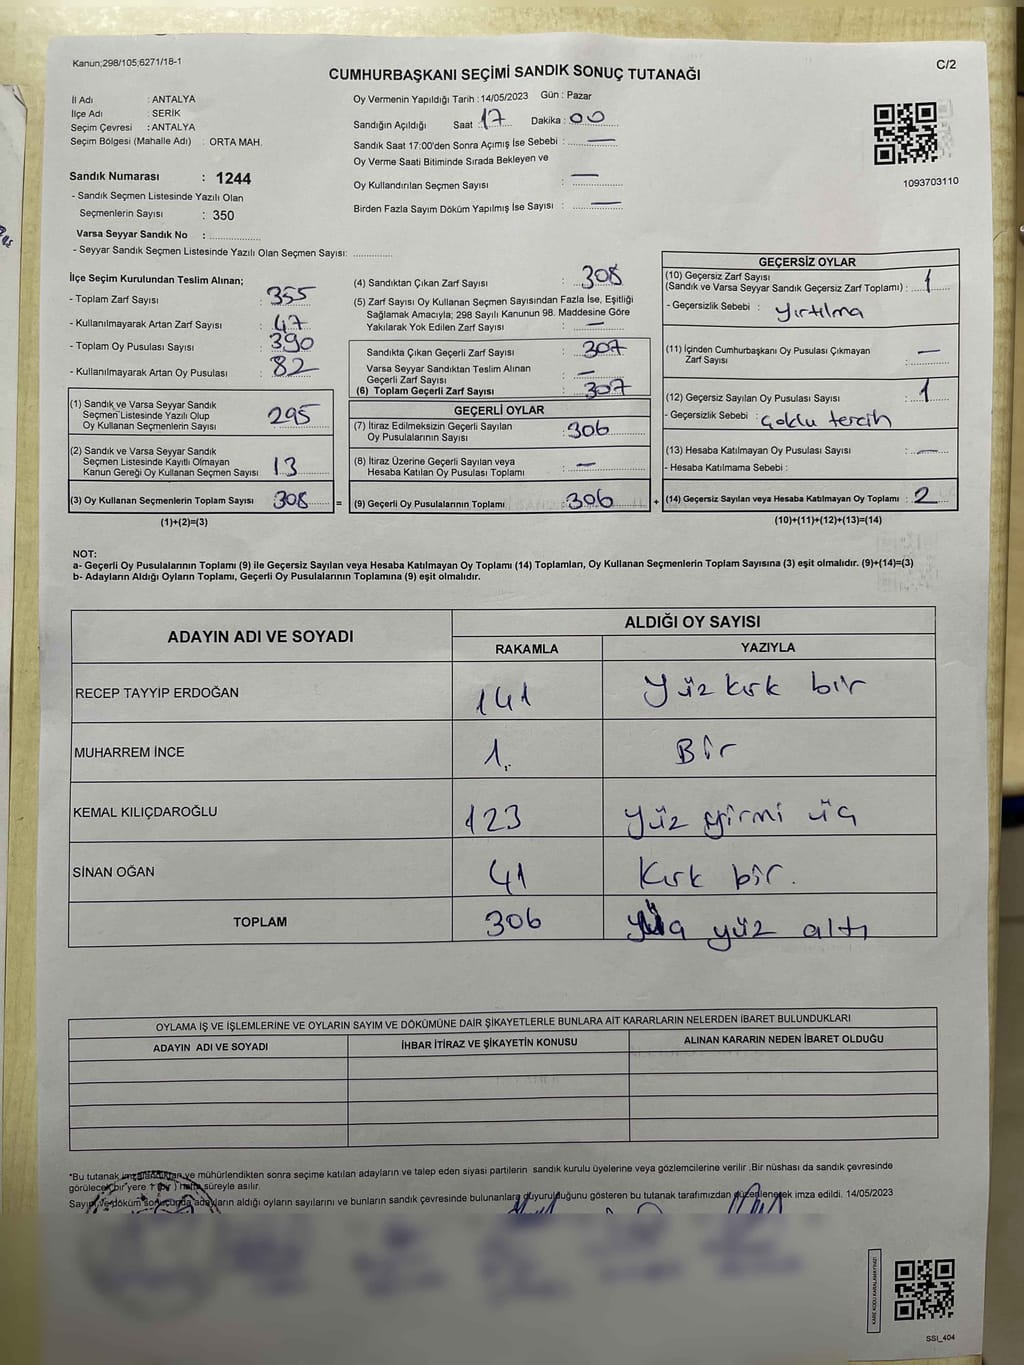 Kanun;298/105;6271/18-1
C/2
CUMHURBAŞKANI SEÇİMİ SANDIK SONUÇ TUTANAĞI
İl Adı : ANTALYA
İlçe Adı : SERİK
Seçim Çevresi : ANTALYA
Seçim Bölgesi (Mahalle Adı) : ORTA MAH.
Sandık Numarası : 1244
- Sandık Seçmen Listesinde Yazılı Olan
Seçmenlerin Sayısı : 350
Varsa Seyyar Sandık No :
- Seyyar Sandık Seçmen Listesinde Yazılı Olan Seçmen Sayısı:
Oy Vermenin Yapıldığı Tarih : 14/05/2023 Gün : Pazar
Sandığın Açıldığı Saat : 17 Dakika : 00
Sandık Saat 17:00'den Sonra Açımış İse Sebebi : —
Oy Verme Saati Bitiminde Sırada Bekleyen ve
Oy Kullandırılan Seçmen Sayısı : —
Birden Fazla Sayım Döküm Yapılmış İse Sayısı : —
1093703110
İlçe Seçim Kurulundan Teslim Alınan;
- Toplam Zarf Sayısı : 355
- Kullanılmayarak Artan Zarf Sayısı : 47
- Toplam Oy Pusulası Sayısı : 390
- Kullanılmayarak Artan Oy Pusulası : 82
(1) Sandık ve Varsa Seyyar Sandık
Seçmen Listesinde Yazılı Olup
Oy Kullanan Seçmenlerin Sayısı 295
(2) Sandık ve Varsa Seyyar Sandık
Seçmen Listesinde Kayıtlı Olmayan
Kanun Gereği Oy Kullanan Seçmen Sayısı 13
(3) Oy Kullanan Seçmenlerin Toplam Sayısı 308 =
(1)+(2)=(3)
(4) Sandıktan Çıkan Zarf Sayısı : 308
(5) Zarf Sayısı Oy Kullanan Seçmen Sayısından Fazla İse, Eşitliği
Sağlamak Amacıyla; 298 Sayılı Kanunun 98. Maddesine Göre
Yakılarak Yok Edilen Zarf Sayısı : —
Sandıkta Çıkan Geçerli Zarf Sayısı : 307
Varsa Seyyar Sandıktan Teslim Alınan
Geçerli Zarf Sayısı : —
(6) Toplam Geçerli Zarf Sayısı : 307
GEÇERLİ OYLAR
(7) İtiraz Edilmeksizin Geçerli Sayılan
Oy Pusulalarının Sayısı : 306
(8) İtiraz Üzerine Geçerli Sayılan veya
Hesaba Katılan Oy Pusulası Toplamı : —
(9) Geçerli Oy Pusulalarının Toplamı : 306 +
GEÇERSİZ OYLAR
(10) Geçersiz Zarf Sayısı
(Sandık ve Varsa Seyyar Sandık Geçersiz Zarf Toplamı) : 1
- Geçersizlik Sebebi : Yırtılma
(11) İçinden Cumhurbaşkanı Oy Pusulası Çıkmayan
Zarf Sayısı : —
(12) Geçersiz Sayılan Oy Pusulası Sayısı : 1
- Geçersizlik Sebebi : çoklu tercih
(13) Hesaba Katılmayan Oy Pusulası Sayısı : —
- Hesaba Katılmama Sebebi :
(14) Geçersiz Sayılan veya Hesaba Katılmayan Oy Toplamı : 2
(10)+(11)+(12)+(13)=(14)
NOT:
a- Geçerli Oy Pusulalarının Toplamı (9) ile Geçersiz Sayılan veya Hesaba Katılmayan Oy Toplamı (14) Toplamları, Oy Kullanan Seçmenlerin Toplam Sayısına (3) eşit olmalıdır. (9)+(14)=(3)
b- Adayların Aldığı Oyların Toplamı, Geçerli Oy Pusulalarının Toplamına (9) eşit olmalıdır.
ADAYIN ADI VE SOYADI
ALDIĞI OY SAYISI
RAKAMLA YAZIYLA
RECEP TAYYİP ERDOĞAN 141 Yüz kırk bir
MUHARREM İNCE 1 Bir
KEMAL KILIÇDAROĞLU 123 Yüz yirmi üç
SİNAN OĞAN 41 Kırk bir.
TOPLAM 306 yüz altı
OYLAMA İŞ VE İŞLEMLERİNE VE OYLARIN SAYIM VE DÖKÜMÜNE DAİR ŞİKAYETLERLE BUNLARA AİT KARARLARIN NELERDEN İBARET BULUNDUKLARI
ADAYIN ADI VE SOYADI İHBAR İTİRAZ VE ŞİKAYETİN KONUSU ALINAN KARARIN NEDEN İBARET OLDUĞU
*Bu tutanak imzalandıktan ve mühürlendikten sonra seçime katılan adayların ve talep eden siyasi partilerin sandık kurulu üyelerine veya gözlemcilerine verilir .Bir nüshası da sandık çevresinde
görülecek bir yere 1 (bir ) hafta süreyle asılır.
Sayım ve döküm sonucunda adayların aldığı oyların sayılarını ve bunların sandık çevresinde bulunanlara duyurulduğunu gösteren bu tutanak tarafımızdan düzenlenerek imza edildi. 14/05/2023
KARE KODU KARALAMAYINIZ!
SSI_404